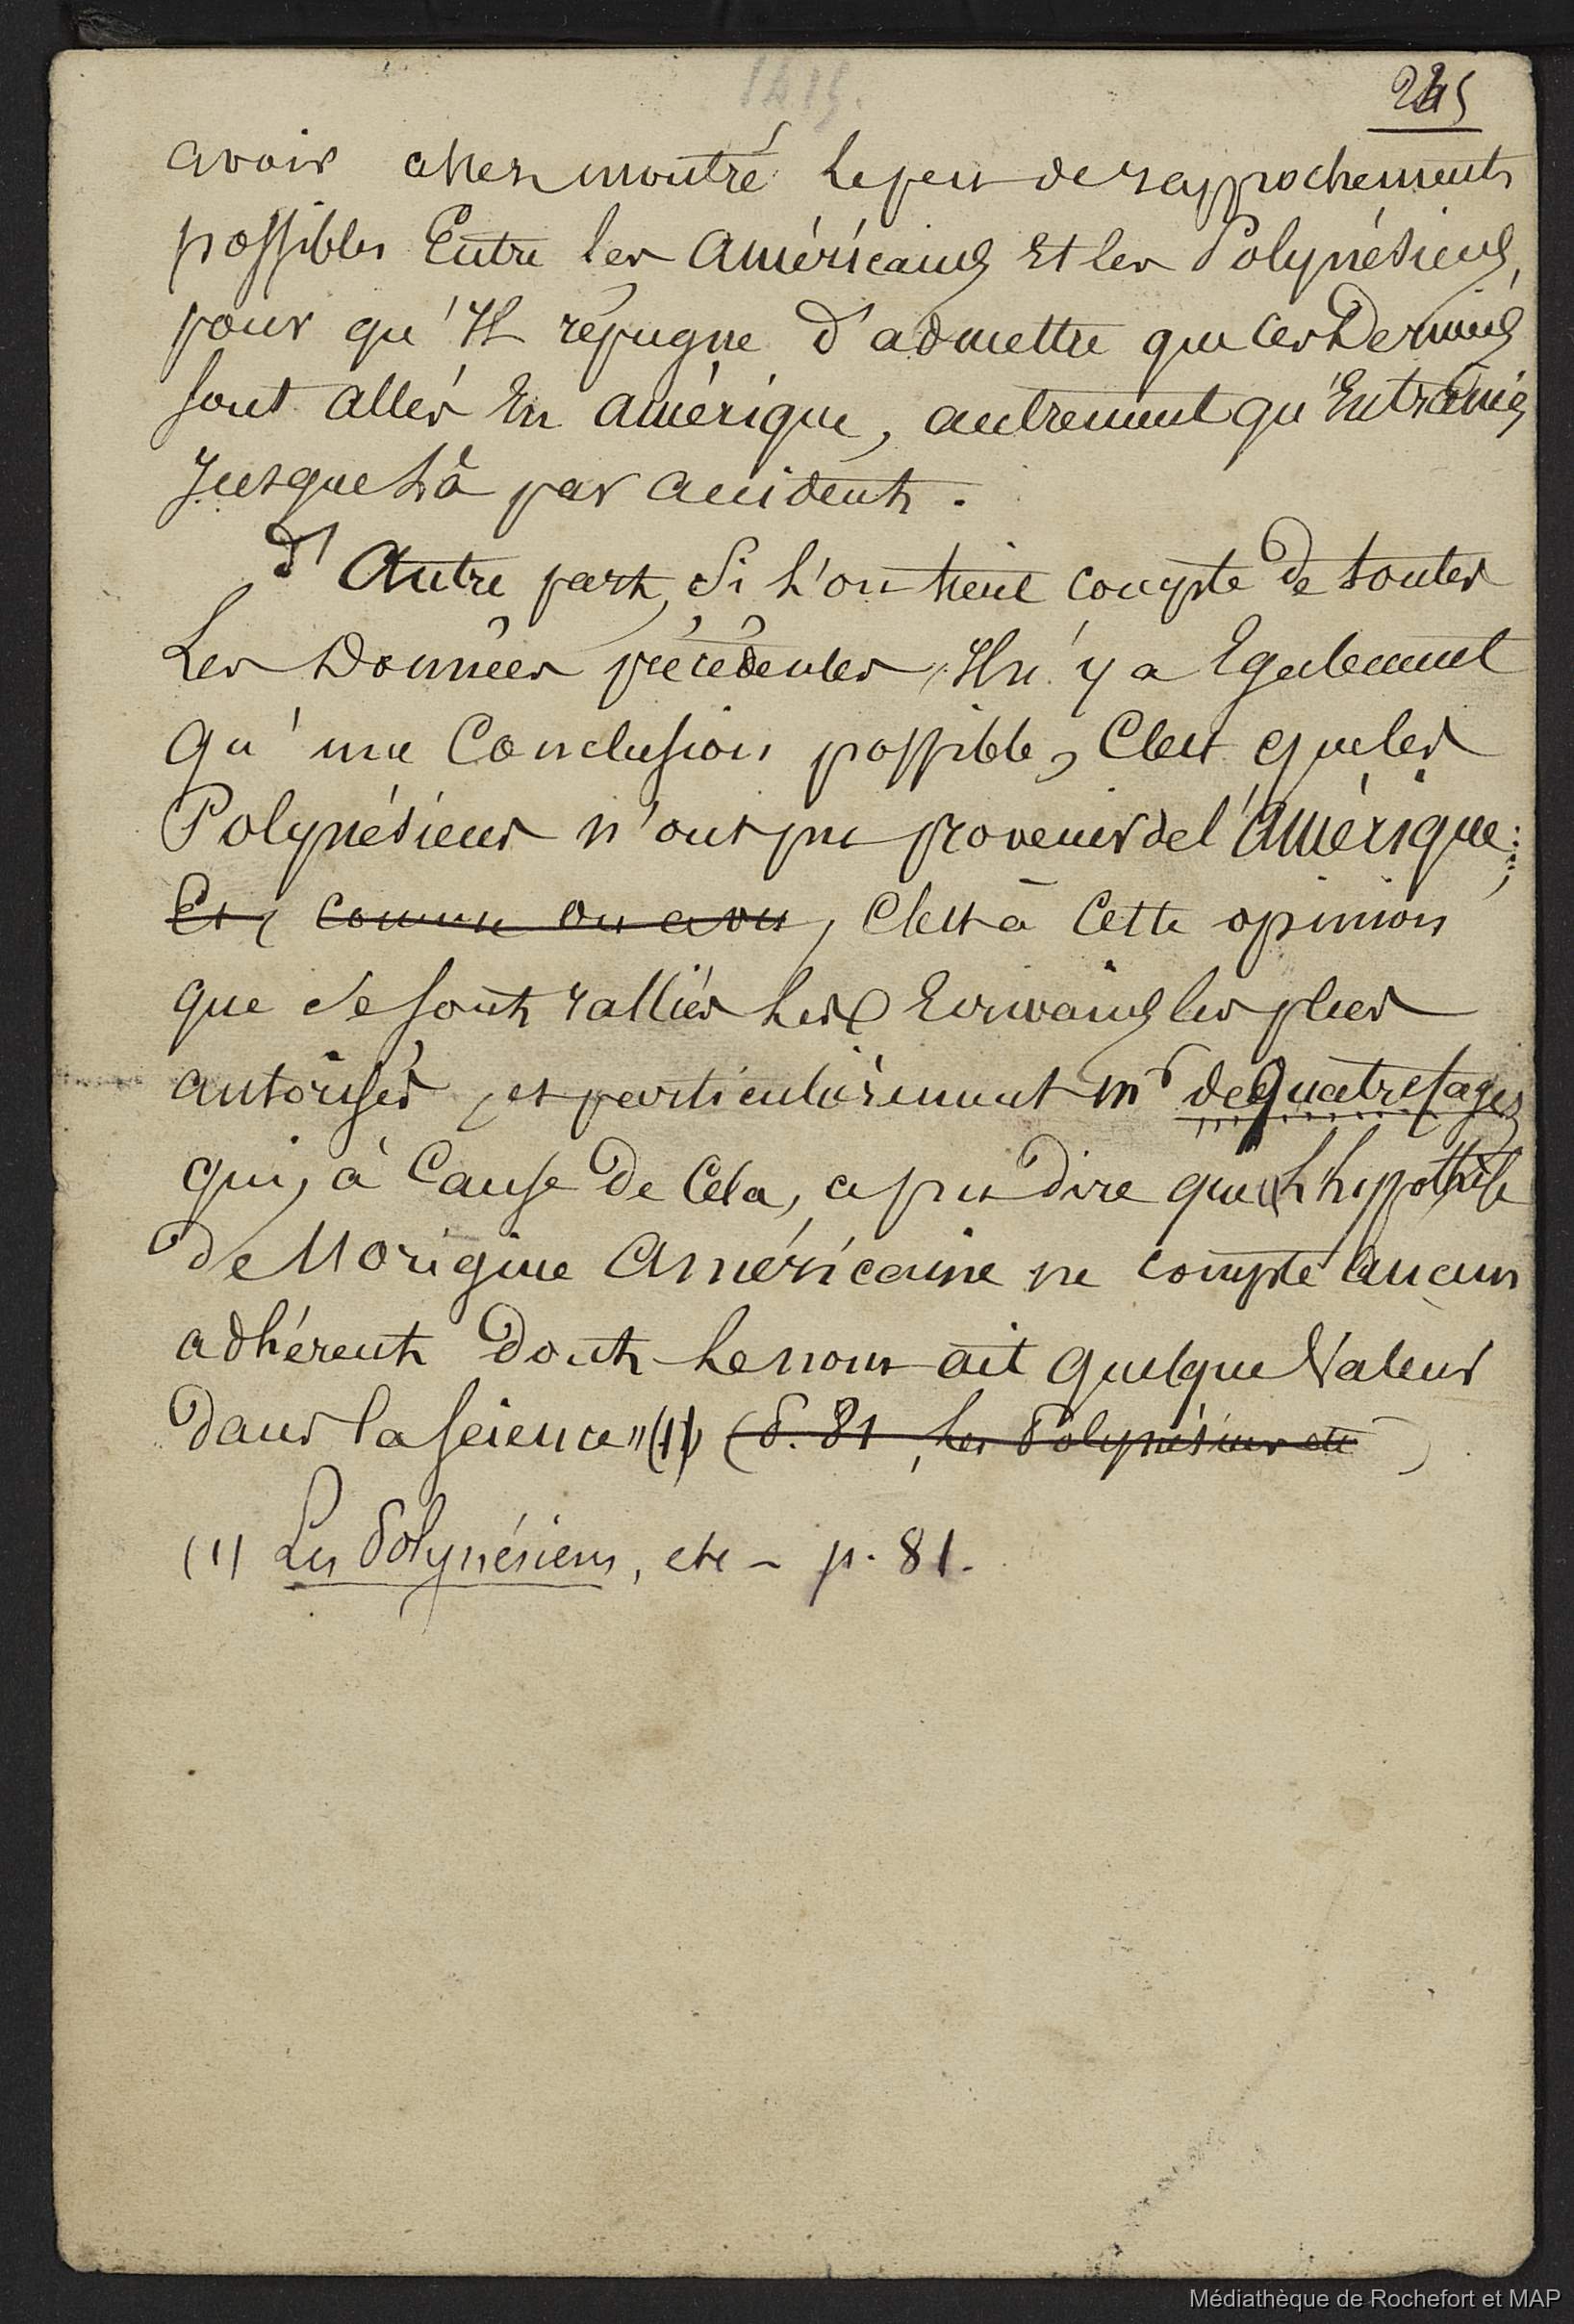 245
avoir assez montré le peu de rapprochements
possibles Entre les Américains Et les Polynésiens,
pour qu'Il répugne d'admettre que ces Derniers
sont allés En Amérique, autrement qu'Entrainés
Jusque là par accident.
d'Autre part, Si l'on tient compte de toutes
Les Données précédentes, Il n'y a Egalement
qu'une Conclusion possible, C'est que les
Polynésiens n'ont pu provenir de l'Amérique;
Et, comme on a vu, C'est à Cette opinion
que se sont ralliés les Ecrivains les plus
autorisés, et particulièrement Mr de Quatrefages
qui, à Cause De Cela, a pu Dire que "l'hypothèse
De l'origine Américaine ne compte aucun
adhérent Dont le nom ait quelque Valeur
Dans la Science" (1) (P. 81, Les Polynésiens etc)
(1) Les Polynésiens, etc – p. 81.
Médiathèque de Rochefort et MAP